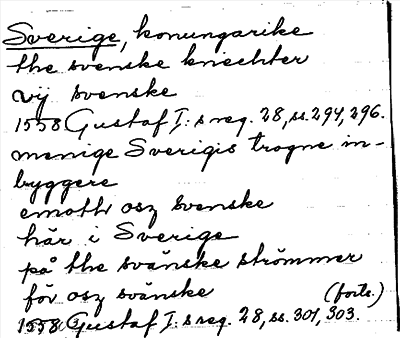 Sverige, konungarike
the svenske kniechter
vij svenske
1558 Gustaf I:s reg. 28, ss. 294, 296.
menige Sverigis trogne in-
byggere
emoth osz svenske
här i Sverige
på the svänske strömmer
för osz svänske (forts.)
1558 Gustaf I:s reg. 28, ss. 301, 303.